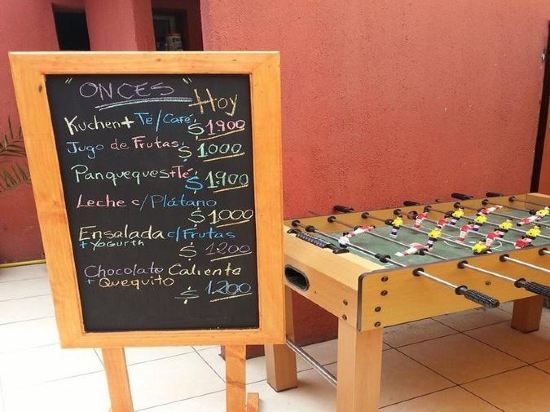 "ONCES"
Hoy
Kuchen + Té/Café
$1900
Jugo de Frutas
$1.000
Panqueques+Té
$1.900
Leche c/Plátano
$1.000
Ensalada c/Frutas
+ Yogurth
$1200
Chocolate Caliente
+ Quequito
$1.200